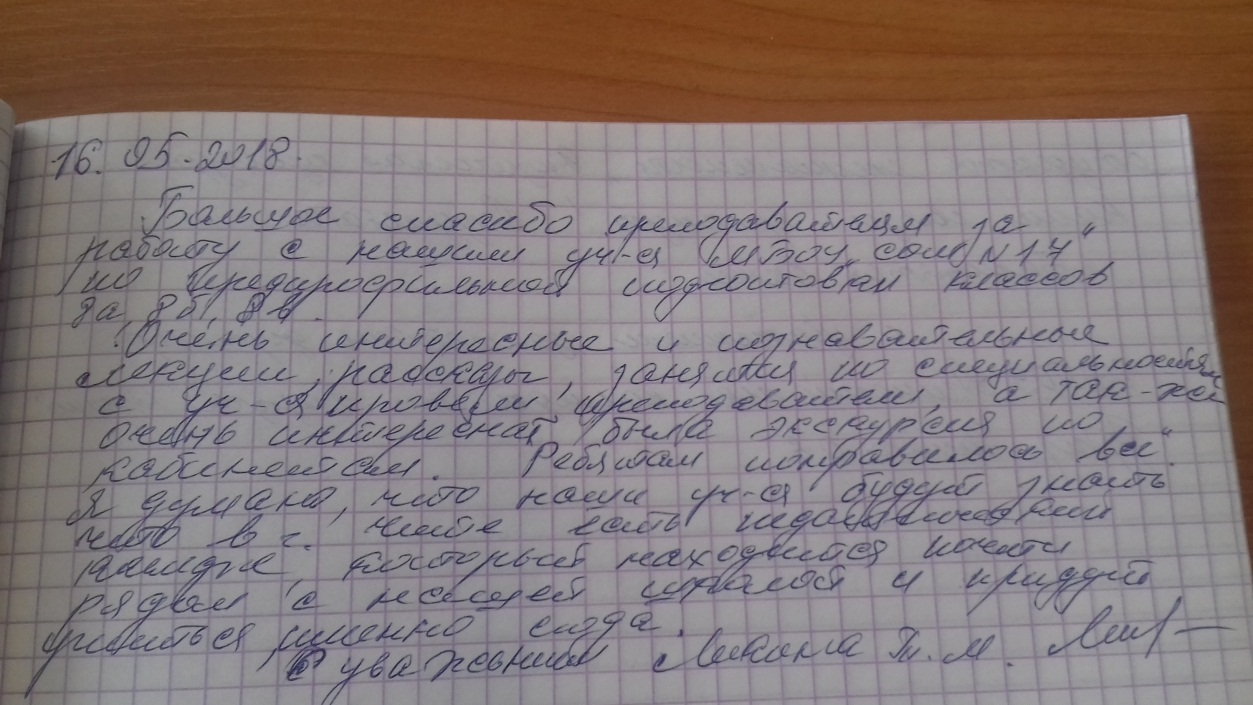 16.05.2018.
Большое спасибо преподавателям за
работу с нашими уч-ся МБОУ СОШ N17"
по предпрофильной подготовки классов
8а, 8б, 8в.
Очень интересные и познавательные
лекции, рассказы, занятия по специальностям
с уч-ся провели преподаватели, а так-же
очень интересная была экскурсия по
кабинетам. Ребятам понравилось все.
Я думаю, что наши уч-ся будут знать
что в г. Чите есть педагогический
колледж, который находится почти
рядом с нашей школой и придут
учиться именно сюда.
С уважением Т.М.